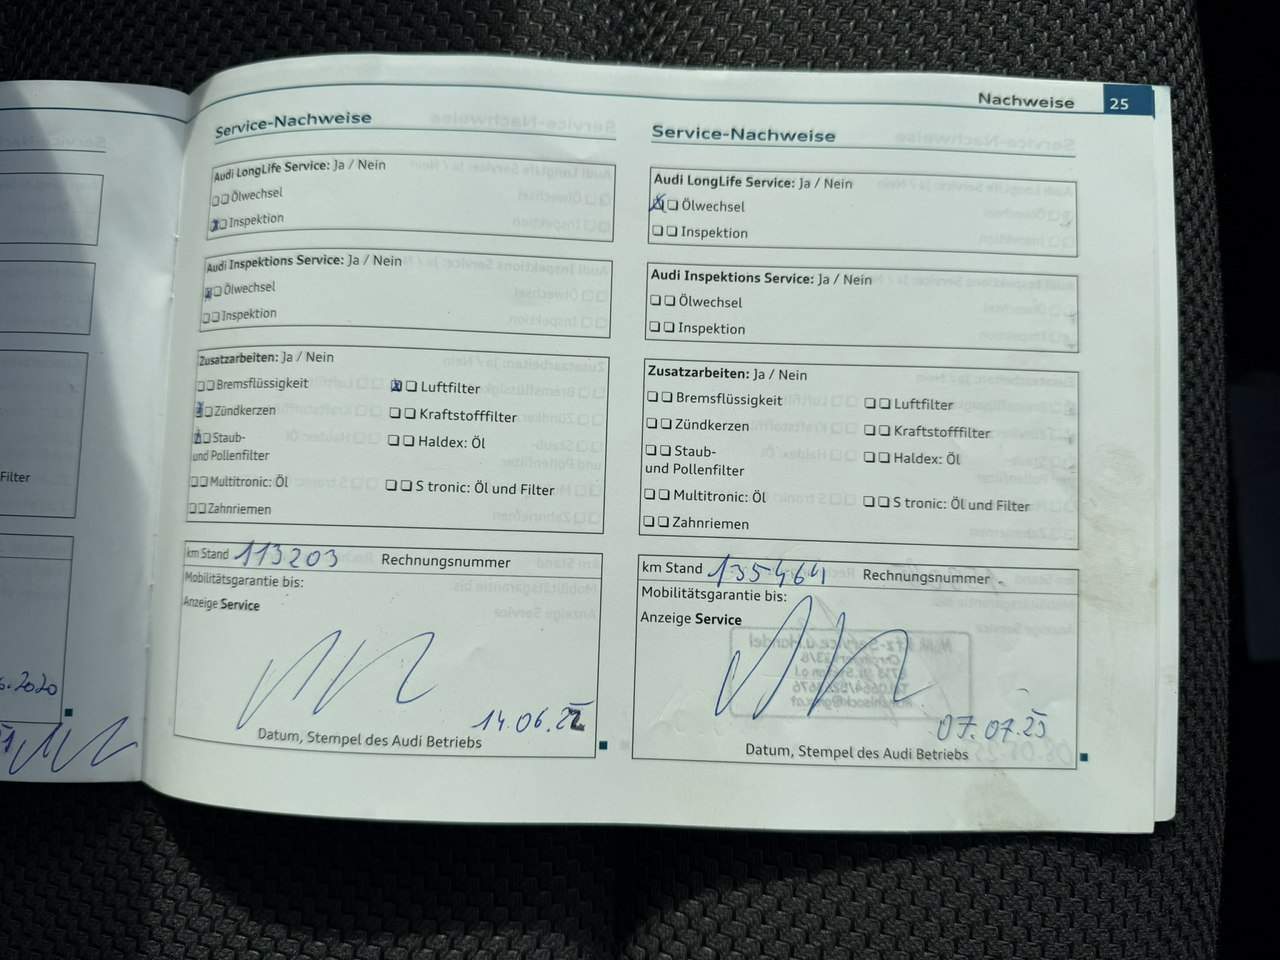 Nachweise 25
Service-Nachweise
Audi LongLife Service: Ja / Nein
Ölwechsel
Inspektion
Audi Inspektions Service: Ja / Nein
Ölwechsel
Inspektion
Zusatzarbeiten: Ja / Nein
Bremsflüssigkeit
Luftfilter
Zündkerzen
Kraftstofffilter
Staub-
und Pollenfilter
Haldex: Öl
Multitronic: Öl
S tronic: Öl und Filter
Zahnriemen
km Stand 113203 Rechnungsnummer
Mobilitätsgarantie bis:
Anzeige Service
14.06.22
Datum, Stempel des Audi Betriebs
Service-Nachweise
Audi LongLife Service: Ja / Nein
Ölwechsel
Inspektion
Audi Inspektions Service: Ja / Nein
Ölwechsel
Inspektion
Zusatzarbeiten: Ja / Nein
Bremsflüssigkeit
Luftfilter
Zündkerzen
Kraftstofffilter
Staub-
und Pollenfilter
Haldex: Öl
Multitronic: Öl
S tronic: Öl und Filter
Zahnriemen
km Stand 135464 Rechnungsnummer
Mobilitätsgarantie bis:
Anzeige Service
07.07.23
Datum, Stempel des Audi Betriebs
Filter
.2020